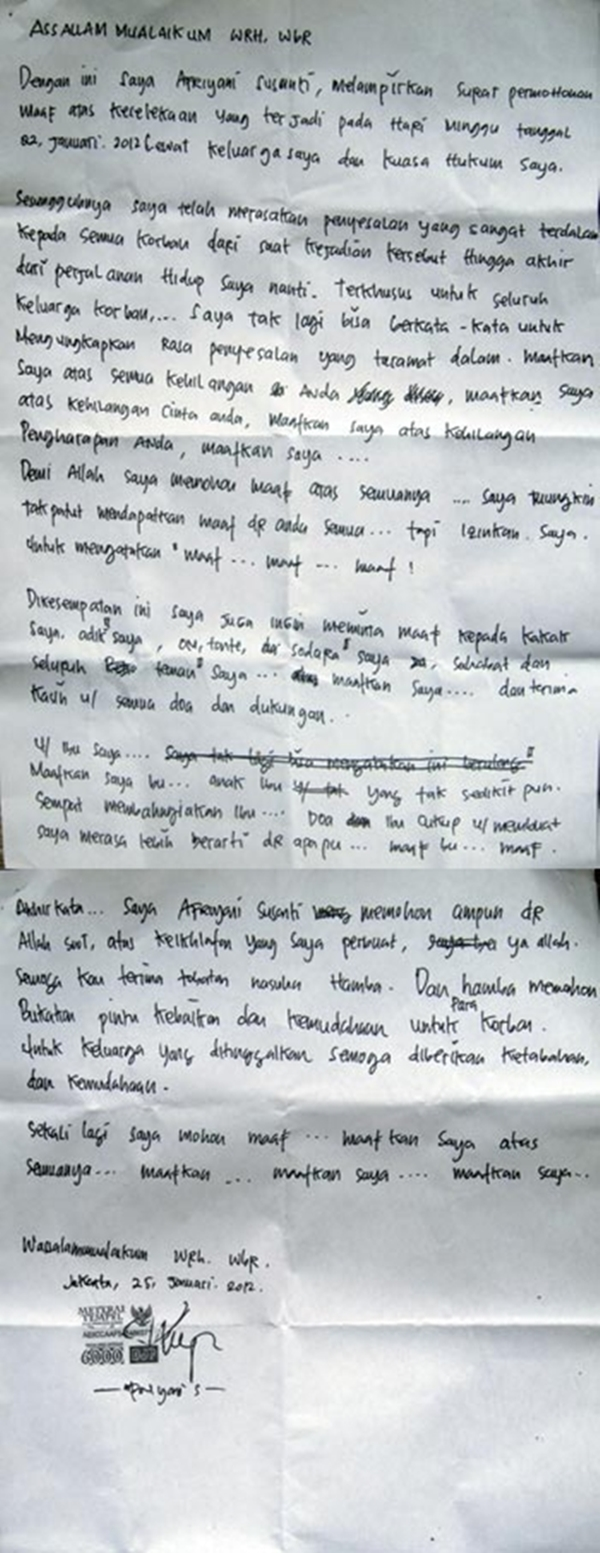 ASSALLAM MUALAIKUM WRH. WBR
Dengan ini saya Afriyani Susanti, melampirkan surat permohonan
maaf atas kecelekaan yang terjadi pada Hari Minggu tanggal
22, Januari. 2012 Lewat keluarga saya dan kuasa Hukum saya.
Sesungguhnya saya telah merasakan penyesalan yang sangat terdalam
kepada semua korban dari saat kejadian tersebut Hingga akhir
dari perjalanan Hidup saya nanti. Terkhusus untuk seluruh
keluarga korban,... saya tak lagi bisa berkata-kata untuk
Mengungkapkan Rasa penyesalan yang teramat dalam. Maafkan
saya atas semua kehilangan Anda, maafkan saya
atas kehilangan cinta anda, Maafkan saya atas kehilangan
Pengharapan Anda, maafkan saya ....
Demi Allah saya memohon maaf atas semuanya .... saya mungkin
tak patut mendapatkan maaf dR anda semua... tapi izinkan. saya.
untuk mengatakan " maaf ... maaf ... maaf !
Dikesempatan ini saya juga ingin meminta maaf kepada kakak
saya. adik" saya, om, tante, sodara" saya, sahabat dan
seluruh teman" saya ... maafkan saya.... dan terima
kasih u/ semua doa dan dukungan.
U/ Ibu saya.... saya tak lagi bisa mengatakan ini berulang"
Maafkan saya bu... anak Ibu yang tak sedikit pun.
sempat membahagiakan Ibu.... Doa Ibu cukup u/ membuat
saya merasa lebih berarti dR apapu... maaf bu... maaf.
Akhir kata... saya Afriyani Susanti memohon ampun dR
Allah SWT, atas kekhilafan yang saya perbuat, ya allah.
Semoga kau terima tobatan nasuha Hamba. Dan hamba memohon
Bukakan pintu kebaikan dan kemudahaan untuk Para korban.
Untuk keluarga yang ditinggalkan semoga diberikan ketabahan,
dan kemudahaan.
Sekali lagi saya mohon maaf ... maafkan saya atas
semuanya... maafkan ... maafkan saya .... maafkan saya..
Wasalamualaikum WRh. WbR.
Jakarta, 25, Januari. 2012.
METERAI
TEMPEL
6000
Afriyani S